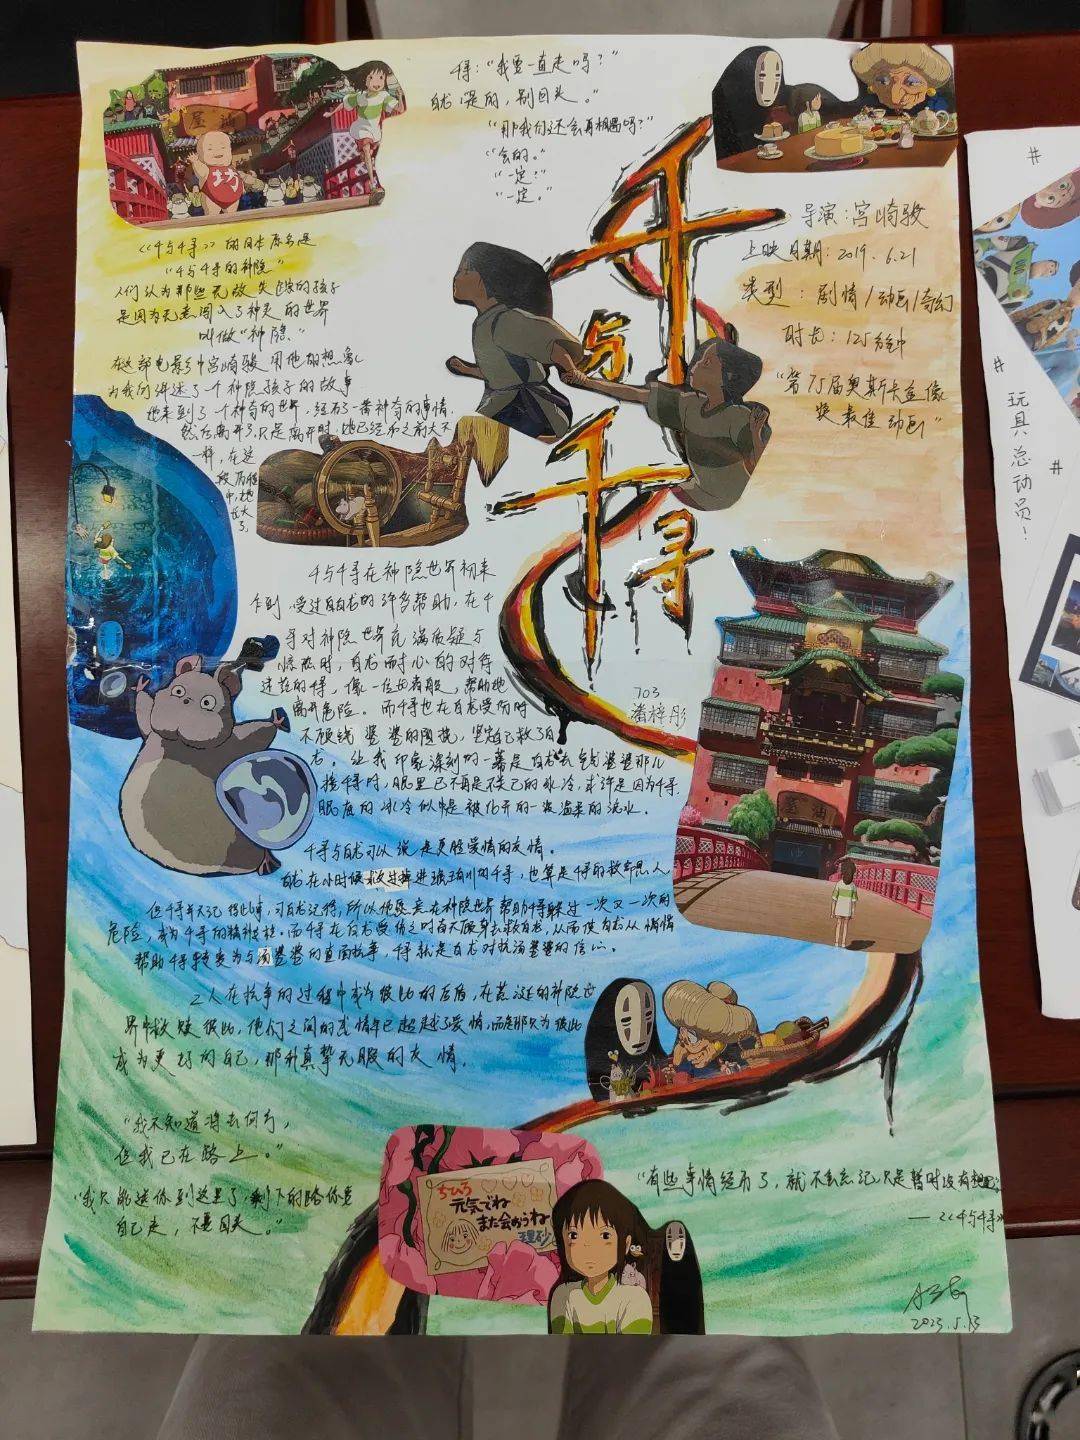 千与千寻
千寻："我要一直走吗？"
白龙：是的，别回头。"
"那我们还会再相遇吗？"
"会的。"
"一定？"
"一定。"
油屋
坊
导演：宫崎骏
上映日期：2019.6.21
类型：剧情/动画/奇幻
时长：125分钟
"第75届奥斯卡金像
奖最佳动画"
《千与千寻》的日本原名是
"千与千寻的神隐"
人们认为那些无故失踪的孩子
是因为无意闯入了神灵的世界
叫做"神隐"
在这部电影中宫崎骏用他的想象
为我们讲述了一个神隐孩子的故事
她来到了一个神奇的世界，经历了一番神奇的事情，
然后离开了只是离开时，她已经和之前大不
一样，在这
段历程
中，她
长大
了。
千与千寻在神隐世界初来
乍到，受过白龙的许多帮助，在千
寻对神隐世界充满质疑与
时，白龙耐心的对待
千寻，像一位
离开危险。而千寻也在白龙受伤时
不顾钱婆婆的阻挠，自己救了白
龙。让我印象深刻的一幕是白龙去钱婆婆那儿
接千寻时，眼里已不再是不关己的冰冷，或许是因为千寻，
眼底的冰冷似乎是被化开的一次温柔的流水。
703
潘梓彤
千寻与白龙可以说是更胜爱情的友情。
白龙在小时候救过掉进琥珀川的千寻，也算是千寻的救命恩人
但千寻并不记得此事，可白龙记得，所以他愿意在神隐世界帮助千寻躲过一次又一次的
危险，成为千寻的精神支柱。而千寻在白龙受伤之时白龙，从而使白龙从悄悄
帮助千寻转变为与汤婆婆的直面抗争，千寻就是白龙对抗汤婆婆的信心。
二人在抗争的过程中成为彼此的后盾，在荒诞的神隐世
界中救赎彼此，他们之间的感情早已超越了爱情，而是那只为彼此
成为更好的自己，那份真挚无暇的友情。
"我不知道将去何方，
但我已在路上。"
"我只能送你到这里了，剩下的路你要
自己走，不要回头。"
ちひろ
元気でね
また会おうね
理砂
"有些事情经历了，就不会忘记只是暂时没有想起"
——《千与千寻》
2023.5.13
#
#
玩具总动员！
#